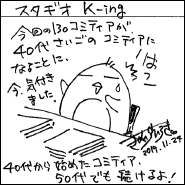 スタヂオ K-ing
今回の130コミティアが、
40代さいごの コミティアに
なることに、
今、気付き
ました。
はっ
2019.11.24
40代から始めたコミティア、
50代でも 続けるよ!